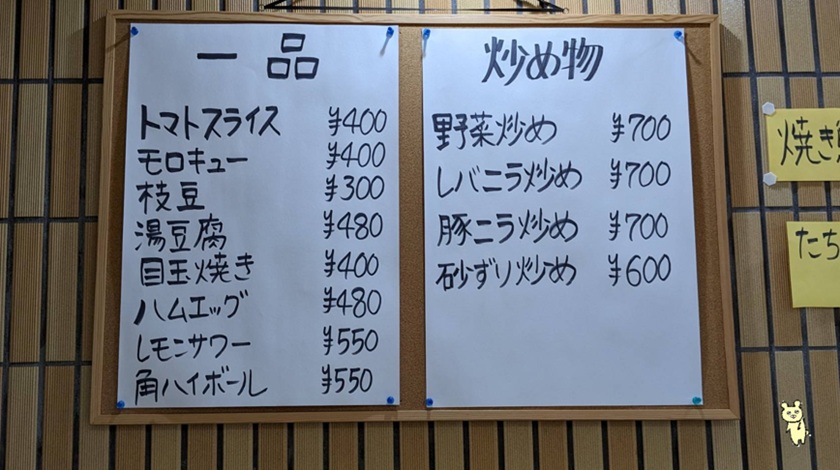 一品
トマトスライス ¥400
モロキュー ¥400
枝豆 ¥300
湯豆腐 ¥480
目玉焼き ¥400
ハムエッグ ¥480
レモンサワー ¥550
角ハイボール ¥550
炒め物
野菜炒め ¥700
レバニラ炒め ¥700
豚ニラ炒め ¥700
砂ずり炒め ¥600
焼き
たち